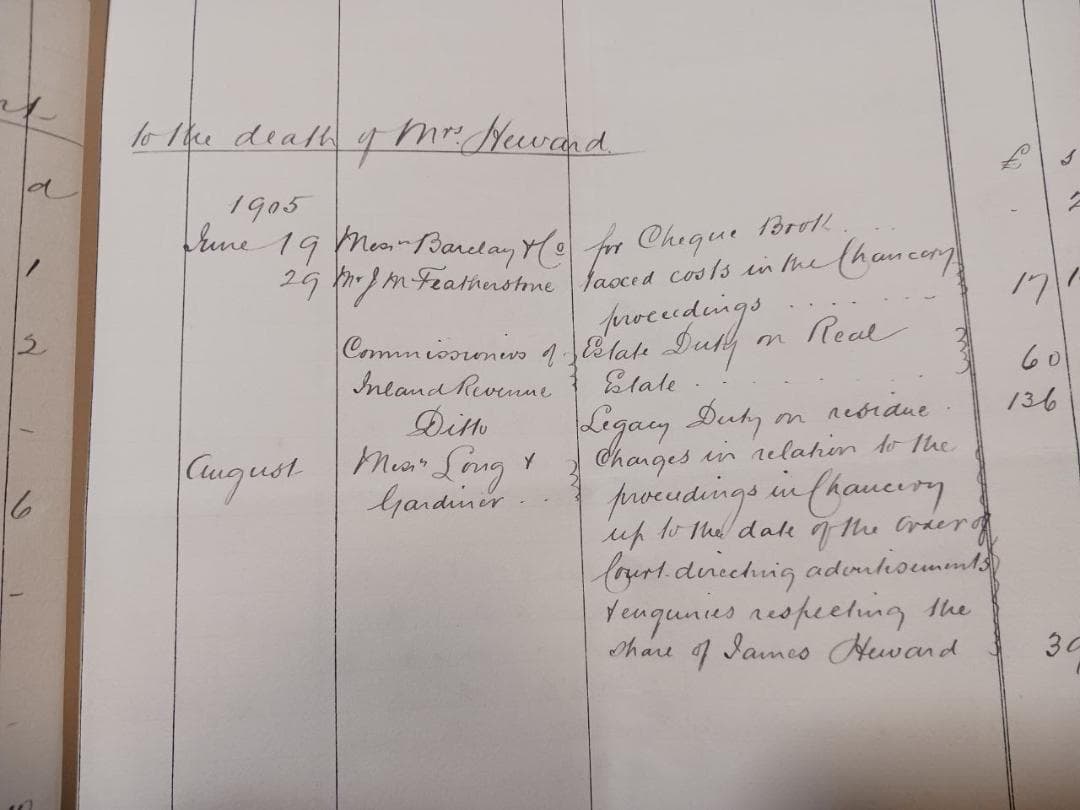 to the death of Mrs. Heward.
£ s
d
1905
June 19 Messrs Barclay & Co for Cheque Book . . . - 2
29 Mr J M Featherstone taxed costs in the Chancery
proceedings . . . . . . . 17 1
1
Commissioners of Estate Duty on Real
2
Inland Revenue Estate . . . . . . 60
Ditto Legacy Duty on residue . 136
-
August Messrs Long & Charges in relation to the
Gardiner . . proceedings in Chancery
6
up to the date of the Order of
Court directing advertisements
-
& enquiries respecting the
share of James Heward 39